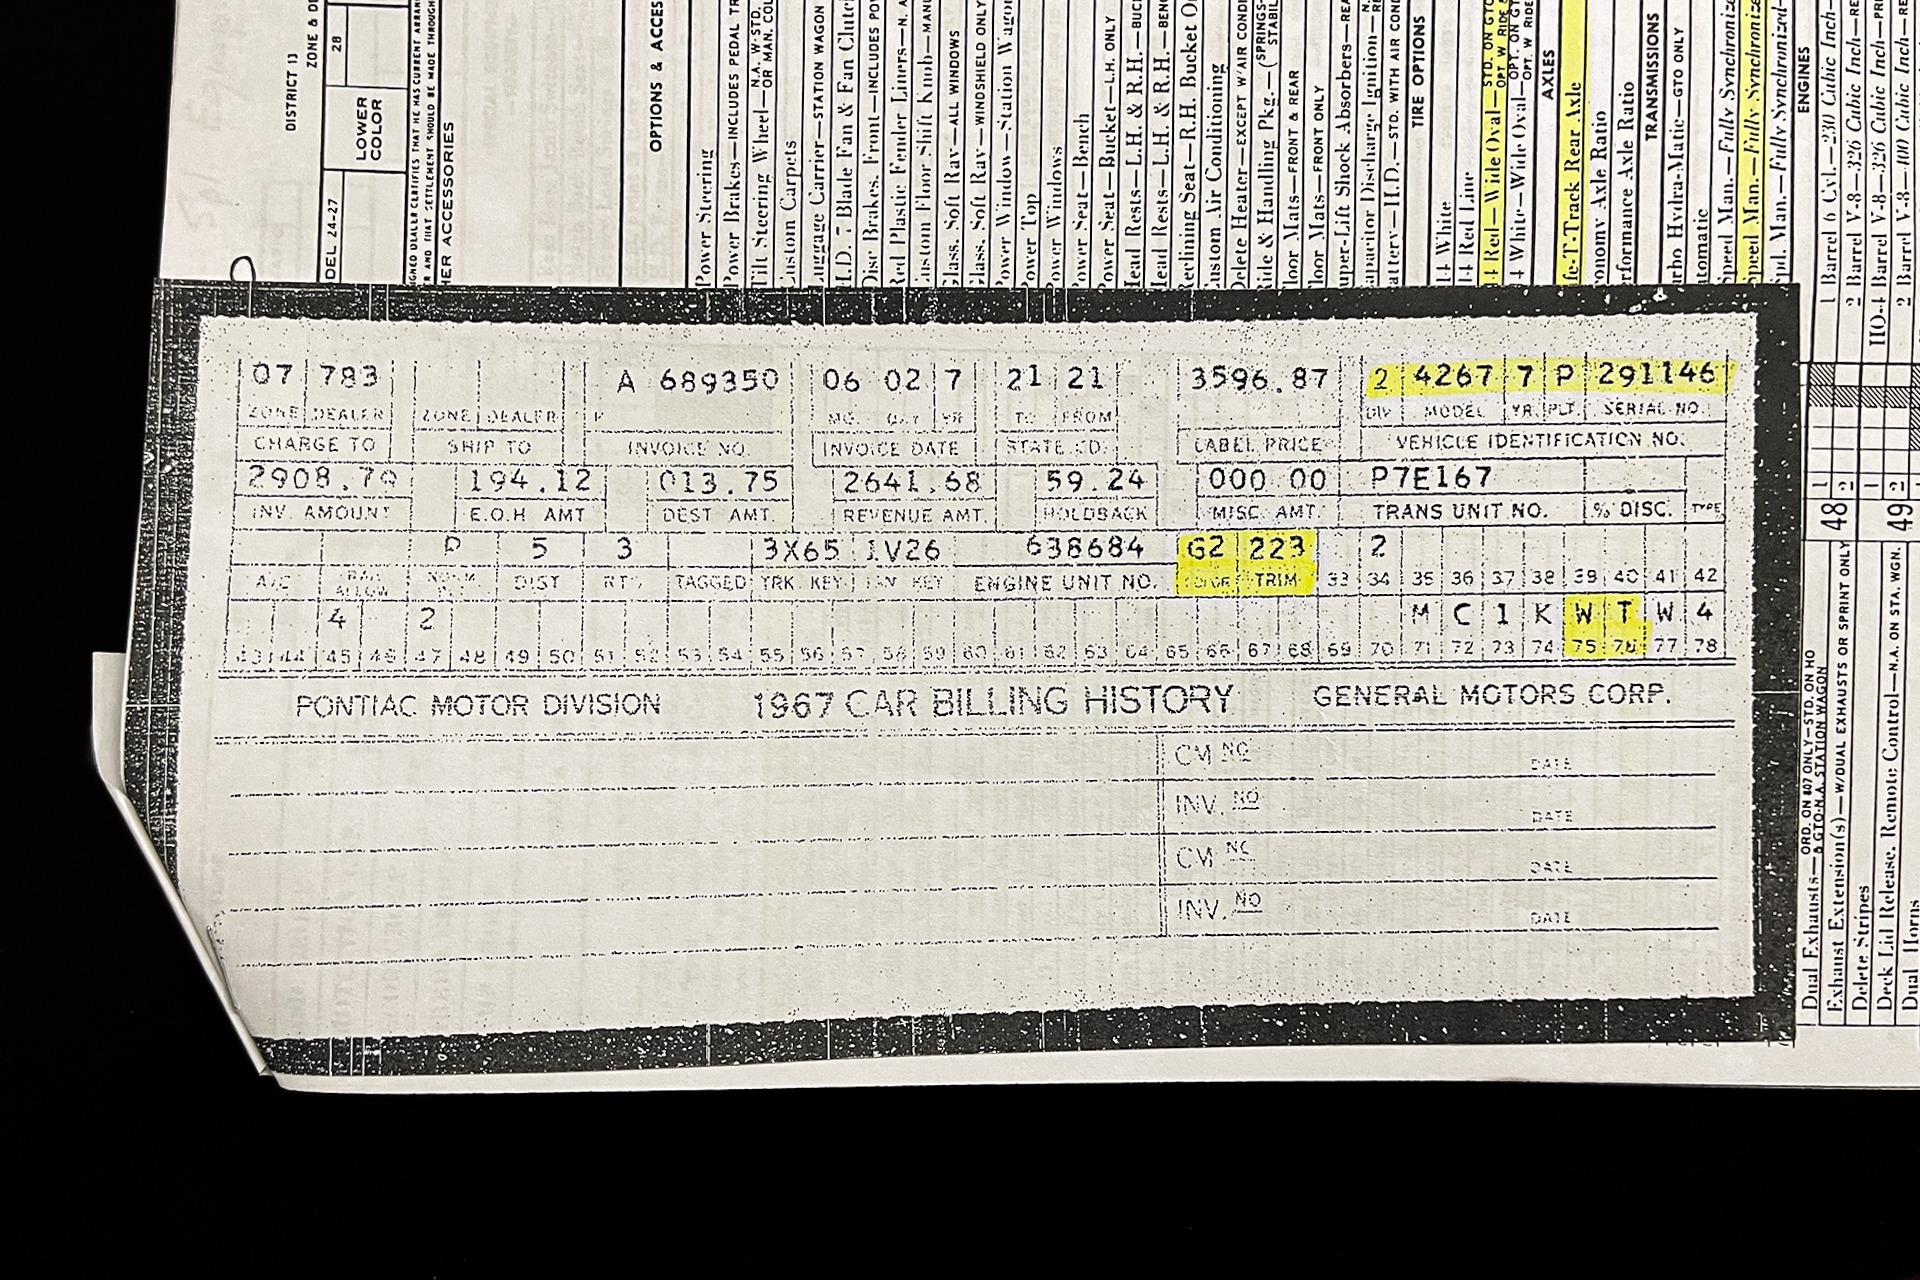 07 783 A 689350 06 02 7 21 21 3596.87 2 4267 7 P 291146
ZONE DEALER ZONE DEALER MO. DAY YR TO FROM DIV MODEL YR. PLT. SERIAL NO.
CHARGE TO SHIP TO INVOICE NO. INVOICE DATE STATE CD. LABEL PRICE VEHICLE IDENTIFICATION NO.
2908.70 194.12 013.75 2641.68 59.24 000 00 P7E167
INV. AMOUNT E.O.H AMT DEST AMT. REVENUE AMT. HOLDBACK MISC. AMT. TRANS UNIT NO. % DISC. TYPE
D 5 3 3X65 1V26 638684 G2 223 2
A/C DIST RTG TAGGED TRK. KEY ENGINE UNIT NO. TRIM 33 34 35 36 37 38 39 40 41 42
4 2 M C 1 K W T W 4
43 44 45 46 47 48 49 50 51 52 53 54 55 56 57 58 59 60 61 62 63 64 65 66 67 68 69 70 71 72 73 74 75 76 77 78
PONTIAC MOTOR DIVISION 1967 CAR BILLING HISTORY GENERAL MOTORS CORP.
CM NO DATE
INV. NO DATE
CM NO DATE
INV. NO DATE
DISTRICT 13
ZONE & D
28
LOWER COLOR
DEL 24-27
HER ACCESSORIES
OPTIONS & ACCES
Power Steering
Power Brakes—INCLUDES PEDAL TR
Tilt Steering Wheel—N.A. W-STD. OR MAN. COL
Custom Carpets
Luggage Carrier—STATION WAGON
H.D. 7 Blade Fan & Fan Clutc
Disc Brakes, Front—INCLUDES POW
Red Plastic Fender Liners—N. A
Custom Floor Shift Knob—MANU
Glass, Soft Ray—ALL WINDOWS
Glass, Soft Ray—WINDSHIELD ONLY
Power Window—Station Wagon
Power Top
Power Windows
Power Seat—Bench
Power Seat—Bucket—L.H. ONLY
Head Rests—L.H. & R.H.—BUC
Head Rests—L.H. & R.H.—BENC
Reclining Seat—R.H. Bucket O
Custom Air Conditioning
Delete Heater—EXCEPT W/AIR CONDI
Ride & Handling Pkg.—(SPRINGS- STABIL
Floor Mats—FRONT & REAR
Floor Mats—FRONT ONLY
uper-Lift Shock Absorbers—REA
apacitor Discharge Ignition—
attery—H.D.—STD. WITH AIR COND
TIRE OPTIONS
14 White
14 Red Line
14 Red—Wide Oval—STD. ON GTO OPT W RIDE &
4 White—Wide Oval—OPT. ON GT OPT. W RIDE
AXLES
fe-T-Track Rear Axle
onomy Axle Ratio
erformance Axle Ratio
TRANSMISSIONS
urbo Hydra-Matic—GTO ONLY
utomatic
Speed Man.—Fully Synchronize
Speed Man.—Fully Synchronize
pd. Man.—Fully Synchronized-
ENGINES
1 Barrel 6 Cyl.—230 Cubic Inch—
2 Barrel V-8—326 Cubic Inch—RE
HO-4 Barrel V-8—326 Cubic Inch—PRE
2 Barrel V-8—400 Cubic Inch—RE
48 1 2
49 1 2
Dual Exhausts—ORD. ON 807 ONLY—STD. ON HO & GTO-N.A. STATION WAGON
Exhaust Extension(s)—W/DUAL EXHAUSTS OR SPRINT ONLY
Delete Stripes
Deck Lid Release, Remote Control—N.A. ON STA. WGN.
Dual Horns